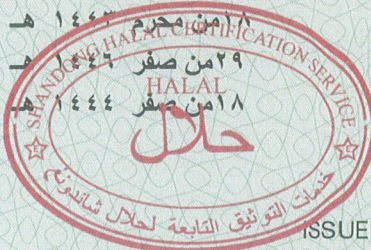 ١٨من محرم ١٤٤٣ هـ
٢٩من صفر ١٤٤٦ هـ
١٨من صفر ١٤٤٤ هـ
SHANDONG HALAL CERTIFICATION SERVICE
HALAL
حلال
خدمات التوثيق التابعة لحلال شاندونغ
ISSUE